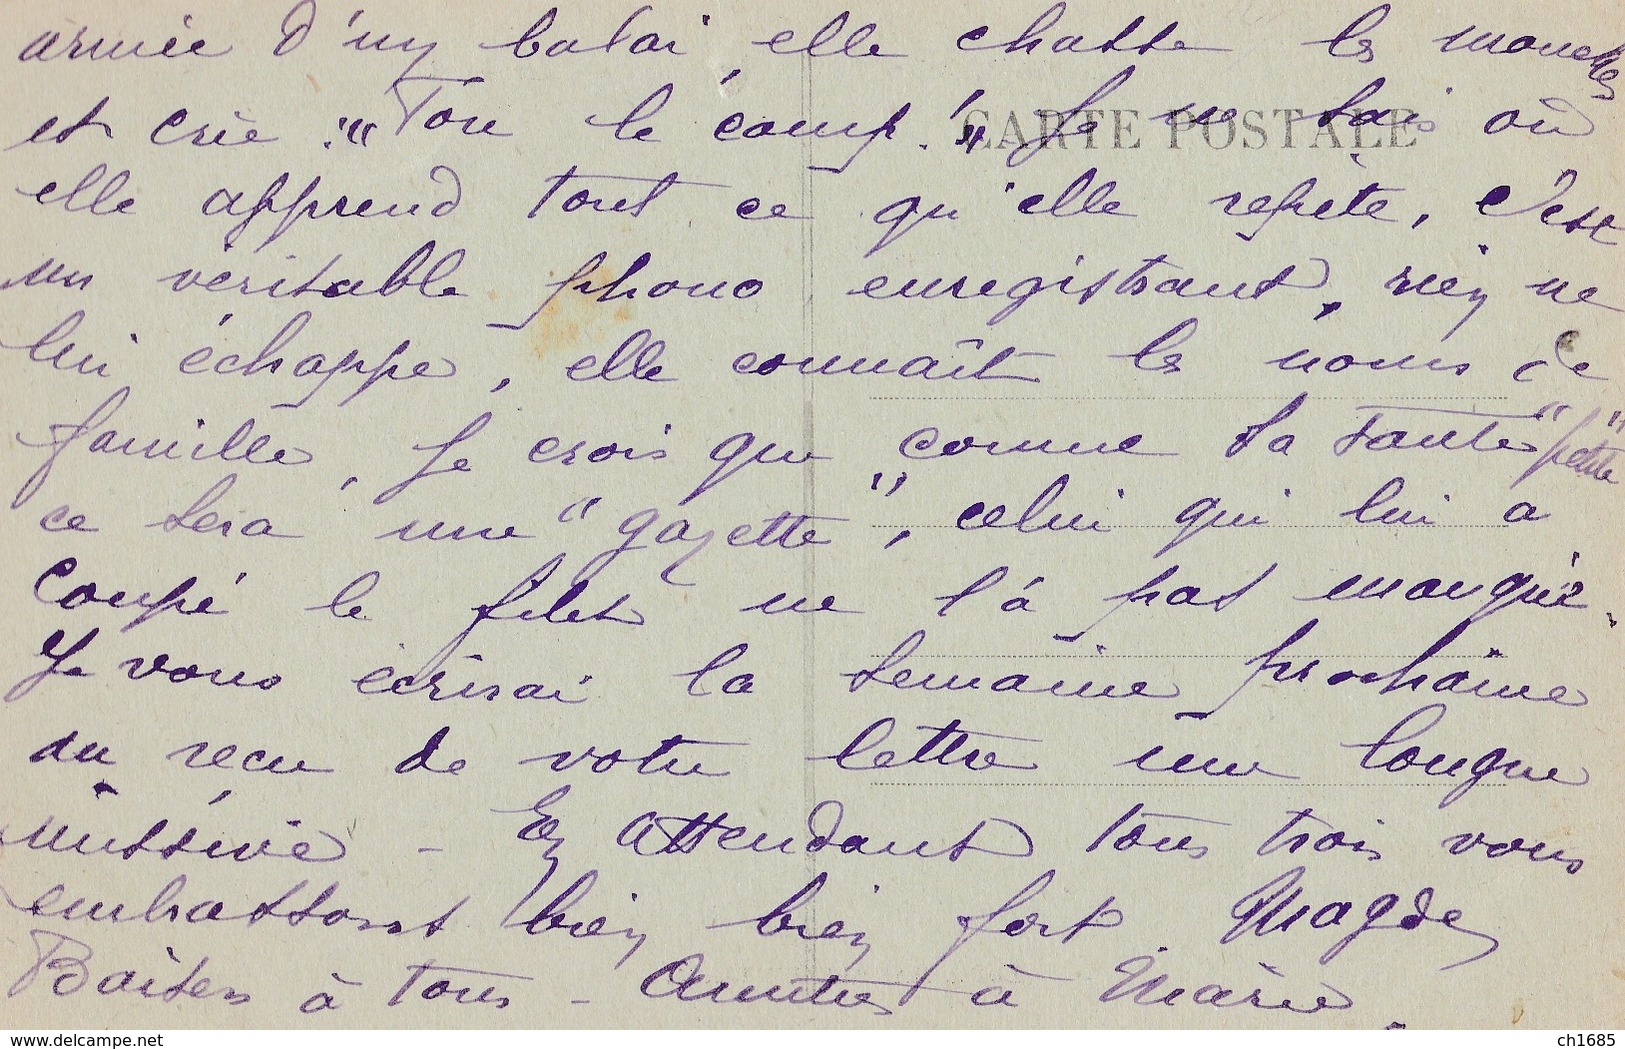 armée d'un balai, elle chasse les mouches
et crie : "Fou le camp !" Je ne sais où
CARTE POSTALE
elle apprend tout ce qu'elle repète, c'est
un véritable phono enregistrant, rien ne
lui échappe, elle connaît les noms de
famille, Je crois que comme sa tante "petite"
ce sera une "gazette", celui qui lui a
coupé le filet ne l'a pas manqué.
Je vous écrirai la semaine prochaine
au reçu de votre lettre une longue
missive - En attendant tous trois vous
embrassons bien bien fort. Magde
Baisers à tous - Amitiés à Marie.
www.delcampe.net
ch1685